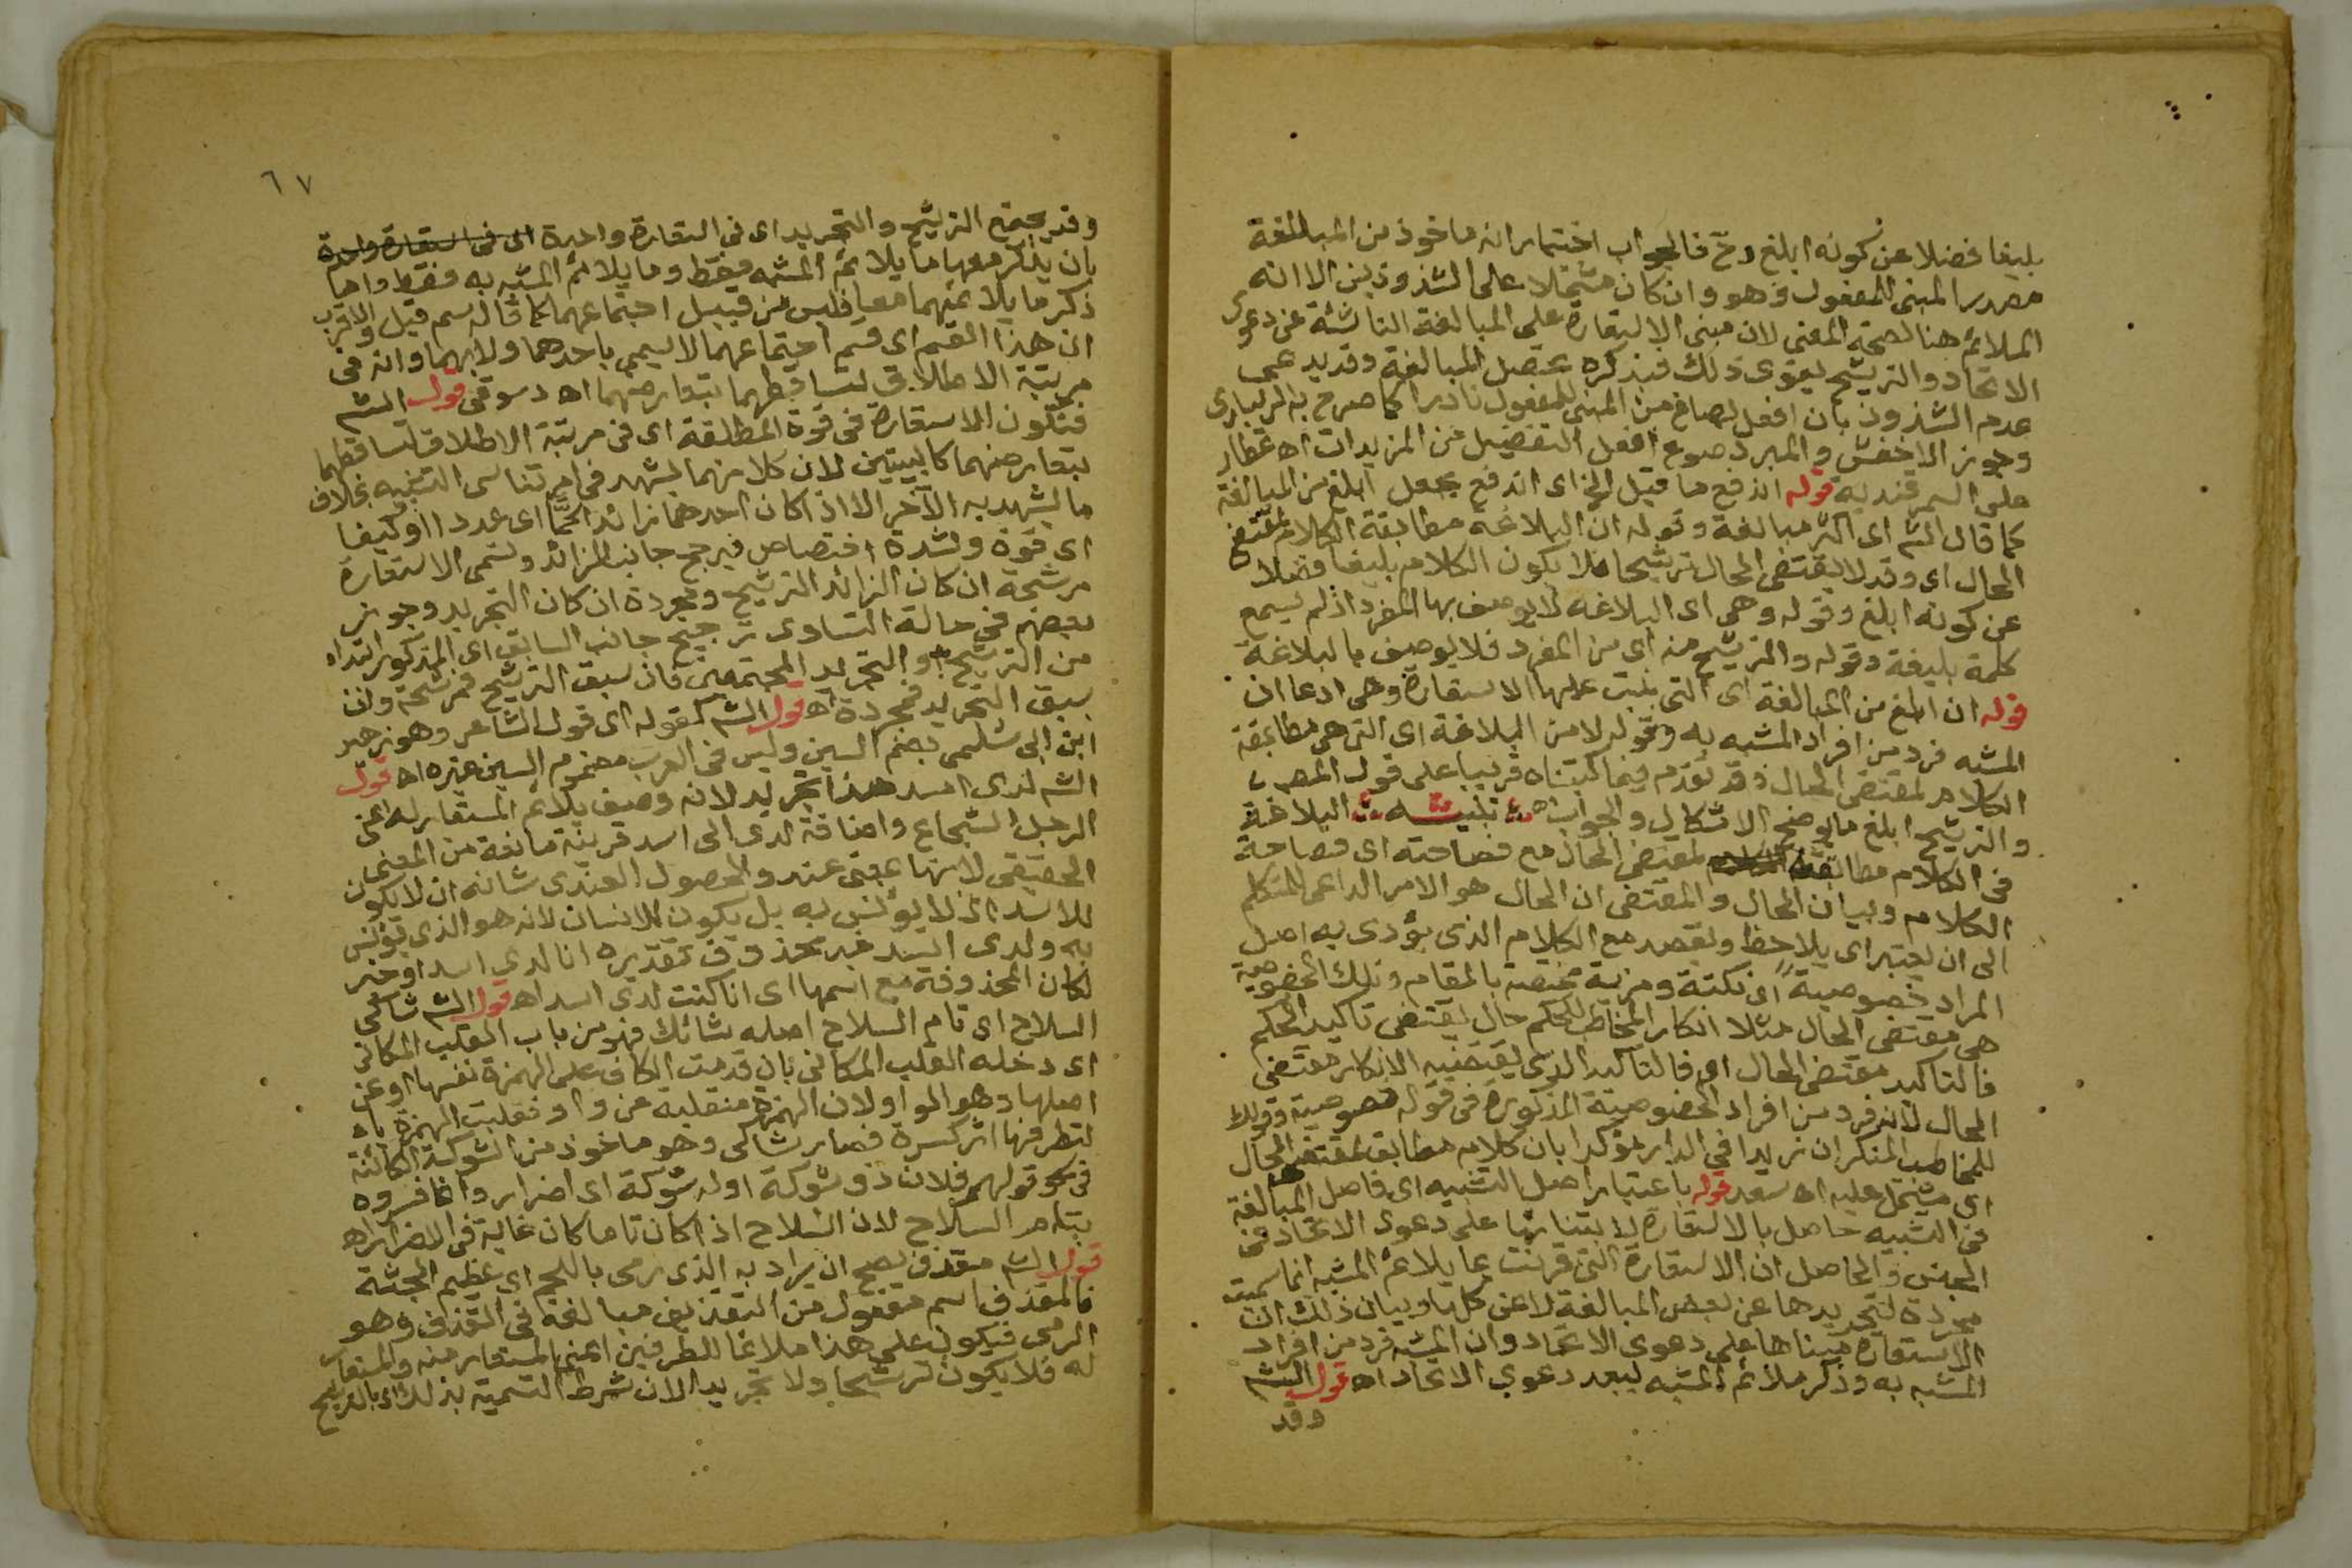 بليغا فضلا عن كونه ابلغ وح فالجواب اختيار انه ماخوذ من المبالغة
مصدر المبنى للمفعول وهو وان كان مشتملا على الشذوذين الا انه
الملائم هنا لصحة المعنى لان مبنى الاستعارة على المبالغة الناشئة عن دعوى
الاتحاد والترشيح يقوى ذلك فبذكره تحصل المبالغة وقد يدعى
عدم الشذوذ بان افعل يصاغ من المبنى للمفعول نادرا كما صرح به
وجوز الاخفش والمبرد صوع افعل التفضيل من المزيدات اه عطار
على السمرقنديه قوله اندفع ما قيل الخ اى اندفع بجعل ابلغ من المبالغة
كما قال الشم اى اكثر مبالغة وقوله ان البلاغة مطابقة الكلام لمقتضى
الحال اى وقد لا يقتضى الحال ترشيحا فلا يكون الكلام بليغا فضلا
عن كونه ابلغ وقوله وهى اى البلاغه لا يوصف بها المفرد اذ لم يسمع
كلمة بليغة وقوله والترشيح منه اى من المفرد فلا يوصف بالبلاغة
قوله ان ابلغ من المبالغة اى التى بنيت عليها الاستعارة وهى ادعا ان
المشبه فرد من افراد المشبه به وقوله لا من البلاغة اى التى هى مطابقة
الكلام لمقتضى الحال وقد تقدم فيما كتبناه قريبا على قول المص
والترشيح ابلغ ما يوضح الاشكال والجواب اه تنبيه البلاغة
فى الكلام مطابقته لمقتضى الحال مع فصاحته اى فصاحة
الكلام وبيان الحال والمقتضى ان الحال هو الامر الداعى للمتكلم
الى ان يعتبر اى يلاحظ ويقصد مع الكلام الذى يؤدى به اصل
المراد خصوصية اى نكتة ومزية مختصة بالمقام وتلك الخصوصية
هى مقتضى الحال مثلا انكار المخاطب للحكم حال يقتضى تاكيد الحكم
فالتاكيد مقتضى الحال اى فالتاكيد الذى يقتضيه الانكار مقتضى
الحال لانه فرد من افراد الخصوصية المذكورة فى قوله خصوصية وقولك
للمخاطب المنكر ان زيدا فى الدار مؤكدا بان كلام مطابق لمقتضى الحال
اى مشتمل عليه اه سعد قوله باعتبار اصل التشبيه اى فاصل المبالغة
فى التشبيه حاصل بالاستعارة لابتنائها على دعوى الاتحاد فى
الجنس والحاصل ان الاستعارة التى قرنت بما يلائم المشبه انما سميت
مجردة لتجريدها عن بعض المبالغة لا عن كلها وبيان ذلك ان
الاستعارة مبناها على دعوى الاتحاد وان المشبه فرد من افراد
المشبه به وذكر ملائم المشبه يبعد دعوى الاتحاد اه قول الشم
وقد
٦٧
وقد يجتمع الترشيح والتجريد اى فى استعارة واحدة اى فى استعارة واحدة
بان يذكر معها ما يلائم المشبه فقط وما يلائم المشبه به فقط واما
ذكر ما يلائمهما معا فليس من قبيل اجتماعهما كما قاله سم قيل والاقرب
ان هذا القسم اى قسم اجتماعهما لا يسمى باحدهما ولا بهما وانه فى
مرتبة الاطلاق لتساقطهما بتعارضهما اه دسوقى قول الشم
فتكون الاستعارة فى قوة المطلقة اى فى مرتبة الاطلاق لتساقطهما
بتعارضهما كالبينتين لان كلا منهما يشهد فى امر تناسى التشبيه بخلاف
ما يشهد به الآخر الا اذا كان احدهما زائدا كمّا اى عددا او كيفا
اى قوة وشدة اختصاص فيرجح جانب الزائد وتسمى الاستعارة
مرشحة ان كان الزائد الترشيح ومجردة ان كان التجريد وجوز
بعضهم فى حالة التساوى ترجيح جانب السابق اى المذكور ابتداء
من الترشيح او التجريد المجتمعين فان سبق الترشيح فمرشحة وان
سبق التجريد فمجردة اه قول الشم كقوله اى قول الشاعر وهو زهير
ابن ابى سُلمى بضم السين وليس فى العرب مضموم السين غيره اه قول
الشم لدى اسد هذا تجريد لانه وصف يلائم المستعار له اعنى
الرجل الشجاع واضافة لدى الى اسد قرينة مانعة من المعنى
الحقيقى لانها بمعنى عند والحصول العندى شانه ان لا يكون
للاسد اذ لا يؤنس به بل يكون للانسان لانه هو الذى يؤنس
به ولدى اسد خبر محذوف تقديره انا لدى اسد او خبر
لكان المحذوفة مع اسمها اى انا كنت لدى اسد اه قول الشم شاكى
السلاح اى تام السلاح اصله شائك فهو من باب القلب المكانى
اى دخله القلب المكانى بان قدمت الكاف على الهمزة نفسها او عن
اصلها وهو الواو لان الهمزة منقلبة عن واو فقلبت الهمزة ياء
لتطرفها اثر كسرة فصار شاكى وهو ماخوذ من الشوكة الكائنة
فى نحو قولهم فلان ذو شوكة او له شوكة اى اضرار وانما فسروه
بتام السلاح لان السلاح اذا كان تاما كان غاية فى الاضرار اه
قول الشم مقذف يصح ان يراد به الذى رمى باللحم اى عظيم الجثة
فالمقذف اسم مفعول من التقذيف مبالغة فى القذف وهو
الرمى فيكون على هذا ملائما للطرفين اعنى المستعار منه والمستعار
له فلا يكون ترشيحا ولا تجريدا لان شرط التسمية بذلك اى بالترشيح